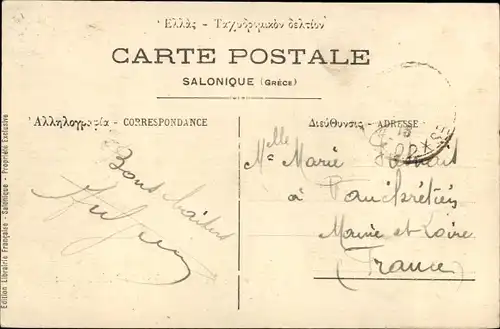 Ἑλλὰς - Ταχυδρομικὸν δελτίον
CARTE POSTALE
SALONIQUE (GRÈCE)
Ἀλληλογραφία - CORRESPONDANCE
Διεύθυνσις - ADRESSE
Bons baisers
Mlle
Marie
à Fauchrétien
Maine et Loire
(France)
Edition Librairie Française - Salonique - Propriété Exclusive